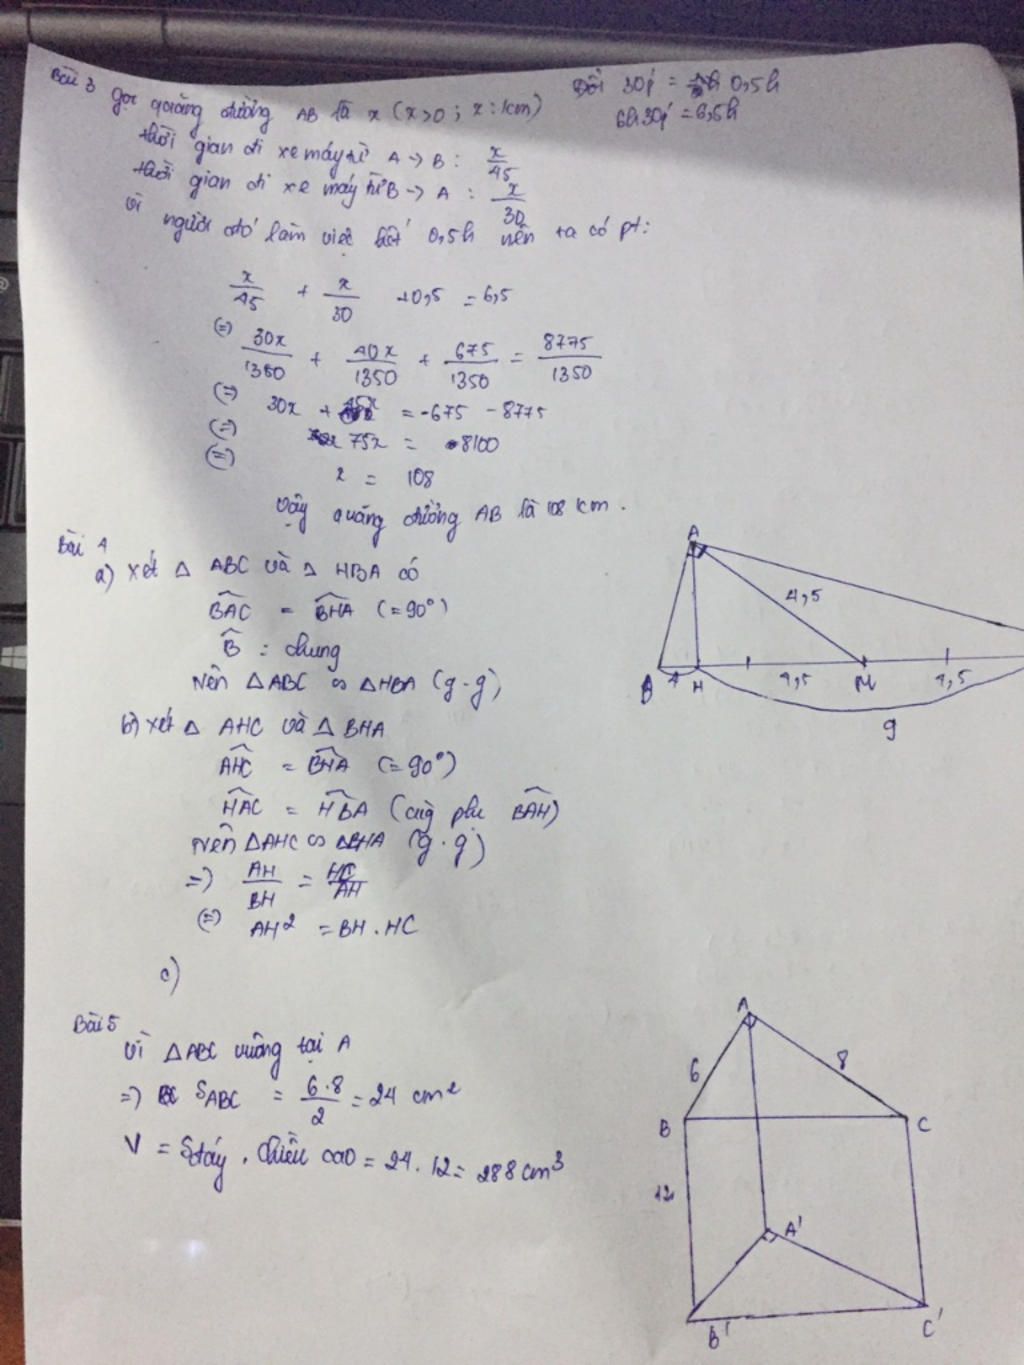 Bài 3
Đổi 30p' = 0,5h
6h30p' = 6,5h
gọi quãng đường AB là x (x>0; x: km)
thời gian đi xe máy từ A → B: x/45
thời gian đi xe máy từ B → A: x/30
vì người đó làm việc hết 0,5h nên ta có pt:
x/45 + x/30 +0,5 = 6,5
(=) 30x/1350 + 40x/1350 + 675/1350 = 8775/1350
(=) 30x + 45x = -675 - 8775
(=) 75x = 8100
(=) x = 108
Vậy quãng đường AB là 108 km.
Bài 4
a) xét Δ ABC và Δ HBA có
BAC = BHA (=90°)
B : chung
Nên ΔABC ∽ ΔHBA (g-g)
b) xét Δ AHC và Δ BHA
AHC = BHA (=90°)
HAC = HBA (cùng phụ BAH)
Nên ΔAHC ∽ ΔBHA (g.g)
=) AH/BH = HC/AH
(=) AH² = BH.HC
c)
A
4,5
B 4 H 4,5 M 4,5
9
Bài 5
Vì ΔABC vuông tại A
=) SABC = 6.8/2 = 24 cm²
V = Sđáy . chiều cao = 24.12 = 288 cm³
A
6 8
B C
12
A'
B' C'